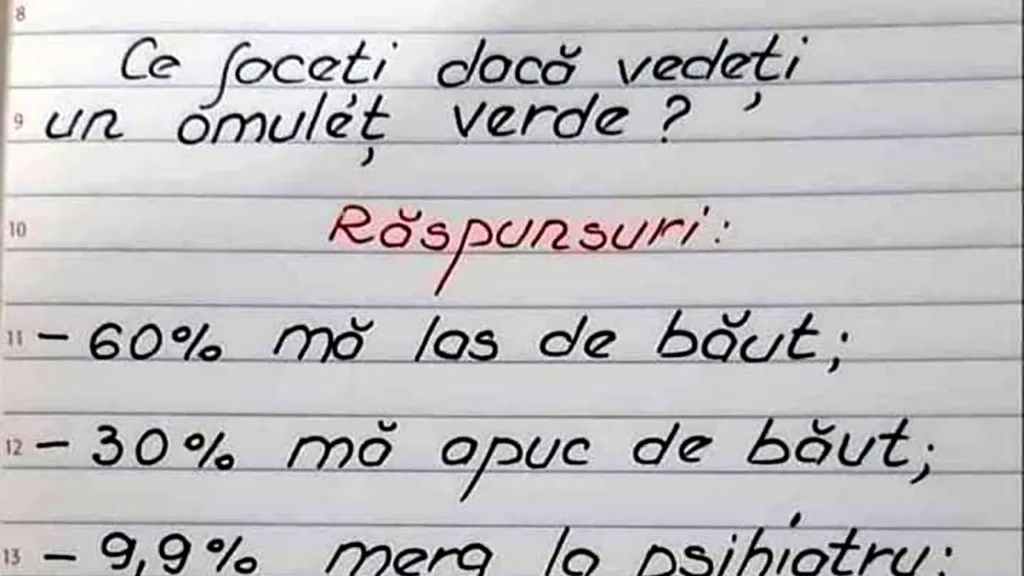 8
Ce faceți dacă vedeți
9 un omuleț verde?
10 Răspunsuri:
11 - 60% mă las de băut;
12 - 30% mă apuc de băut;
13 - 9,9% merg la psihiatru;